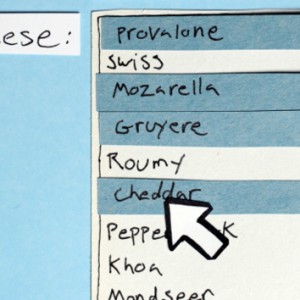 ese:
Provalone
Swiss
Mozarella
Gruyere
Roumy
Cheddar
Khoa
Mondseer